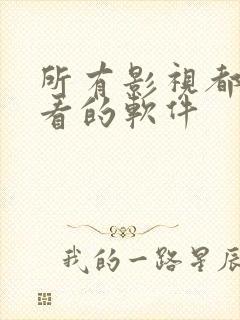 所有影視都
看的軟件
我的一路星辰